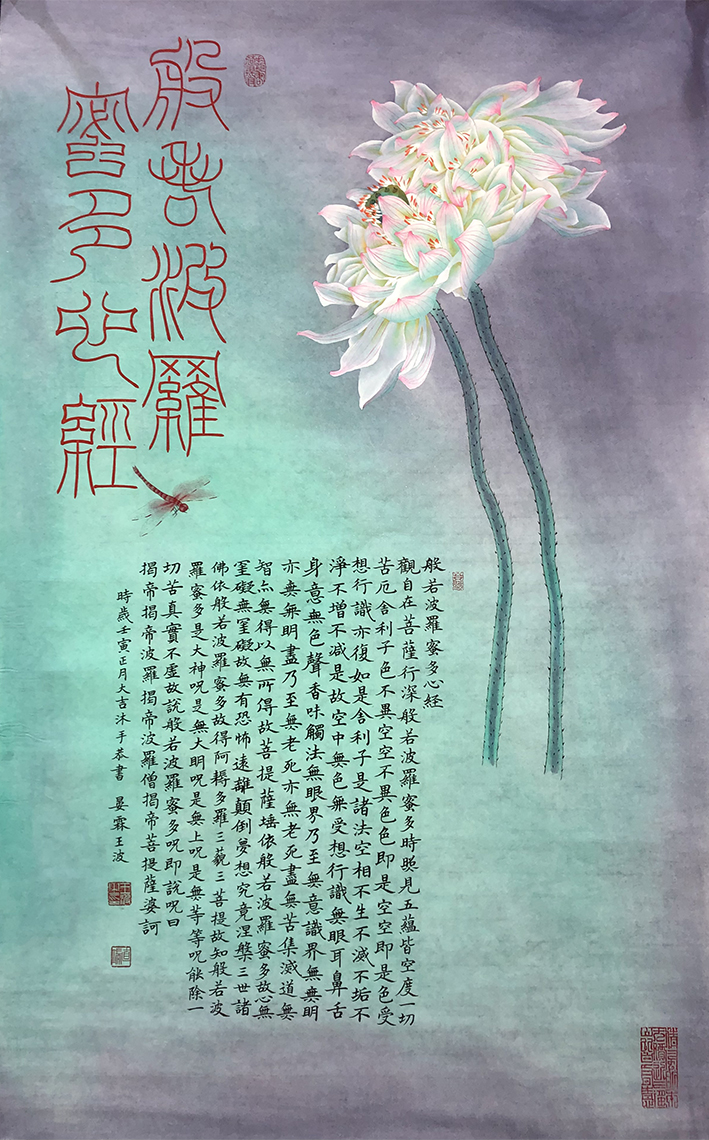 般若波羅
蜜多心經
般若波羅蜜多心経
觀自在菩薩行深般若波羅蜜多時照見五蘊皆空度一切
苦厄舍利子色不異空空不異色色即是空空即是色受
想行識亦復如是舍利子是諸法空相不生不滅不垢不
淨不增不減是故空中無色無受想行識無眼耳鼻舌
身意無色聲香味觸法無眼界乃至無意識界無無明
亦無無明盡乃至無老死亦無老死盡無苦集滅道無
智亦無得以無所得故菩提薩埵依般若波羅蜜多故心無
罣礙無罣礙故無有恐怖遠離顛倒夢想究竟涅槃三世諸
佛依般若波羅蜜多故得阿耨多羅三藐三菩提故知般若波
羅蜜多是大神呪是無大明呪是無上呪是無等等呪能除一
切苦真實不虛故說般若波羅蜜多呪即說呪曰
揭帝揭帝波羅揭帝波羅僧揭帝菩提薩婆訶
時歲壬寅正月大吉沐手恭書 晏霖王波